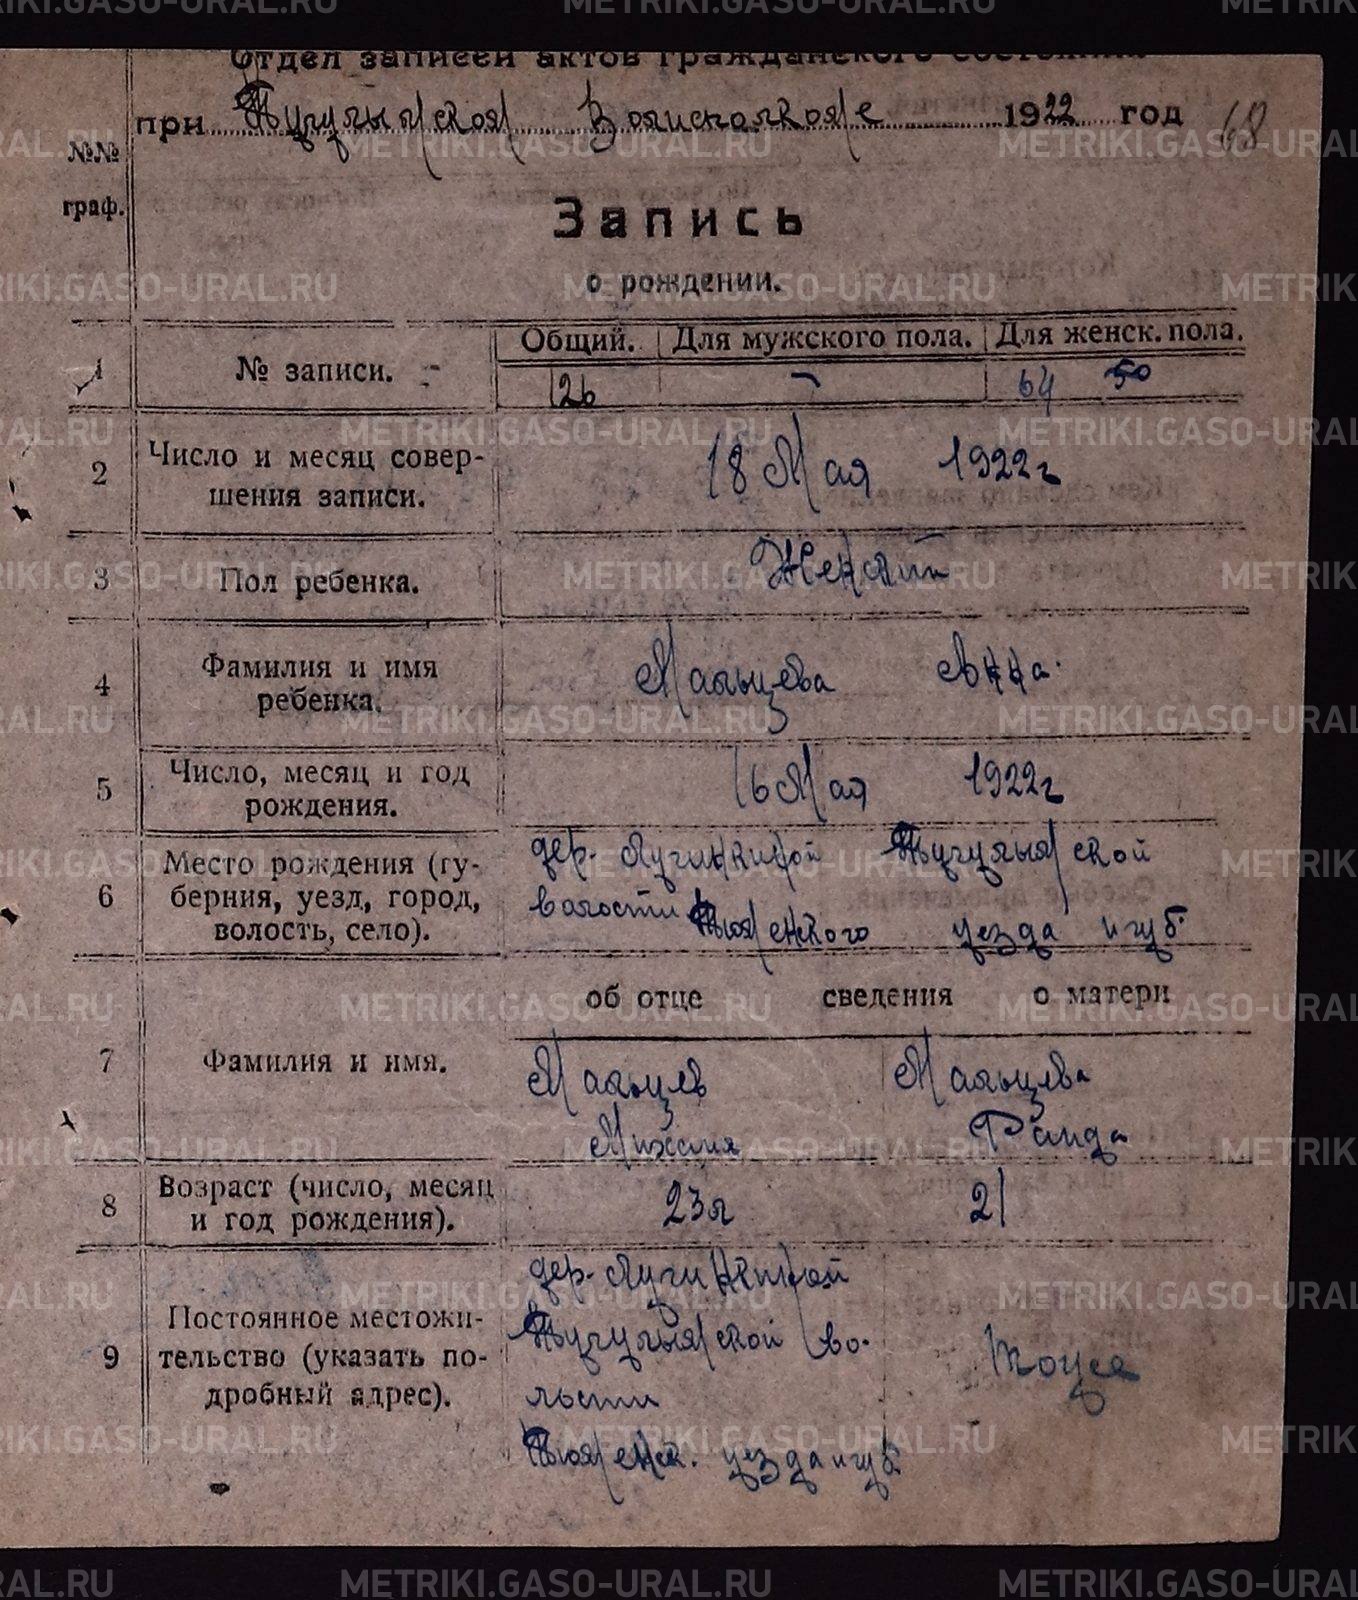 Отдел записей актов гражданского состояния
при Тугулымской Волисполкоме 1922 год 68
№№
граф.
Запись
о рождении.
Общий. Для мужского пола. Для женск. пола.
1 № записи. 126 - 64 50
2 Число и месяц совер-
шения записи.
18 Мая 1922 г
3 Пол ребенка. Женский
4 Фамилия и имя
ребенка.
Мальцева Анна.
5 Число, месяц и год
рождения.
16 Мая 1922 г
6 Место рождения (гу-
берния, уезд, город,
волость, село).
дер. Лучинкиной Тугулымской
волости Тюменского уезда и губ.
об отце сведения о матери
7 Фамилия и имя.
Мальцев Мальцева
Михаил Раида
8 Возраст (число, месяц
и год рождения).
23 л 21
9 Постоянное местожи-
тельство (указать по-
дробный адрес).
дер. Лучинкиной
Тугулымской во-
лости
Тюменск. уезда и губ.
METRIKI.GASO-URAL.RU